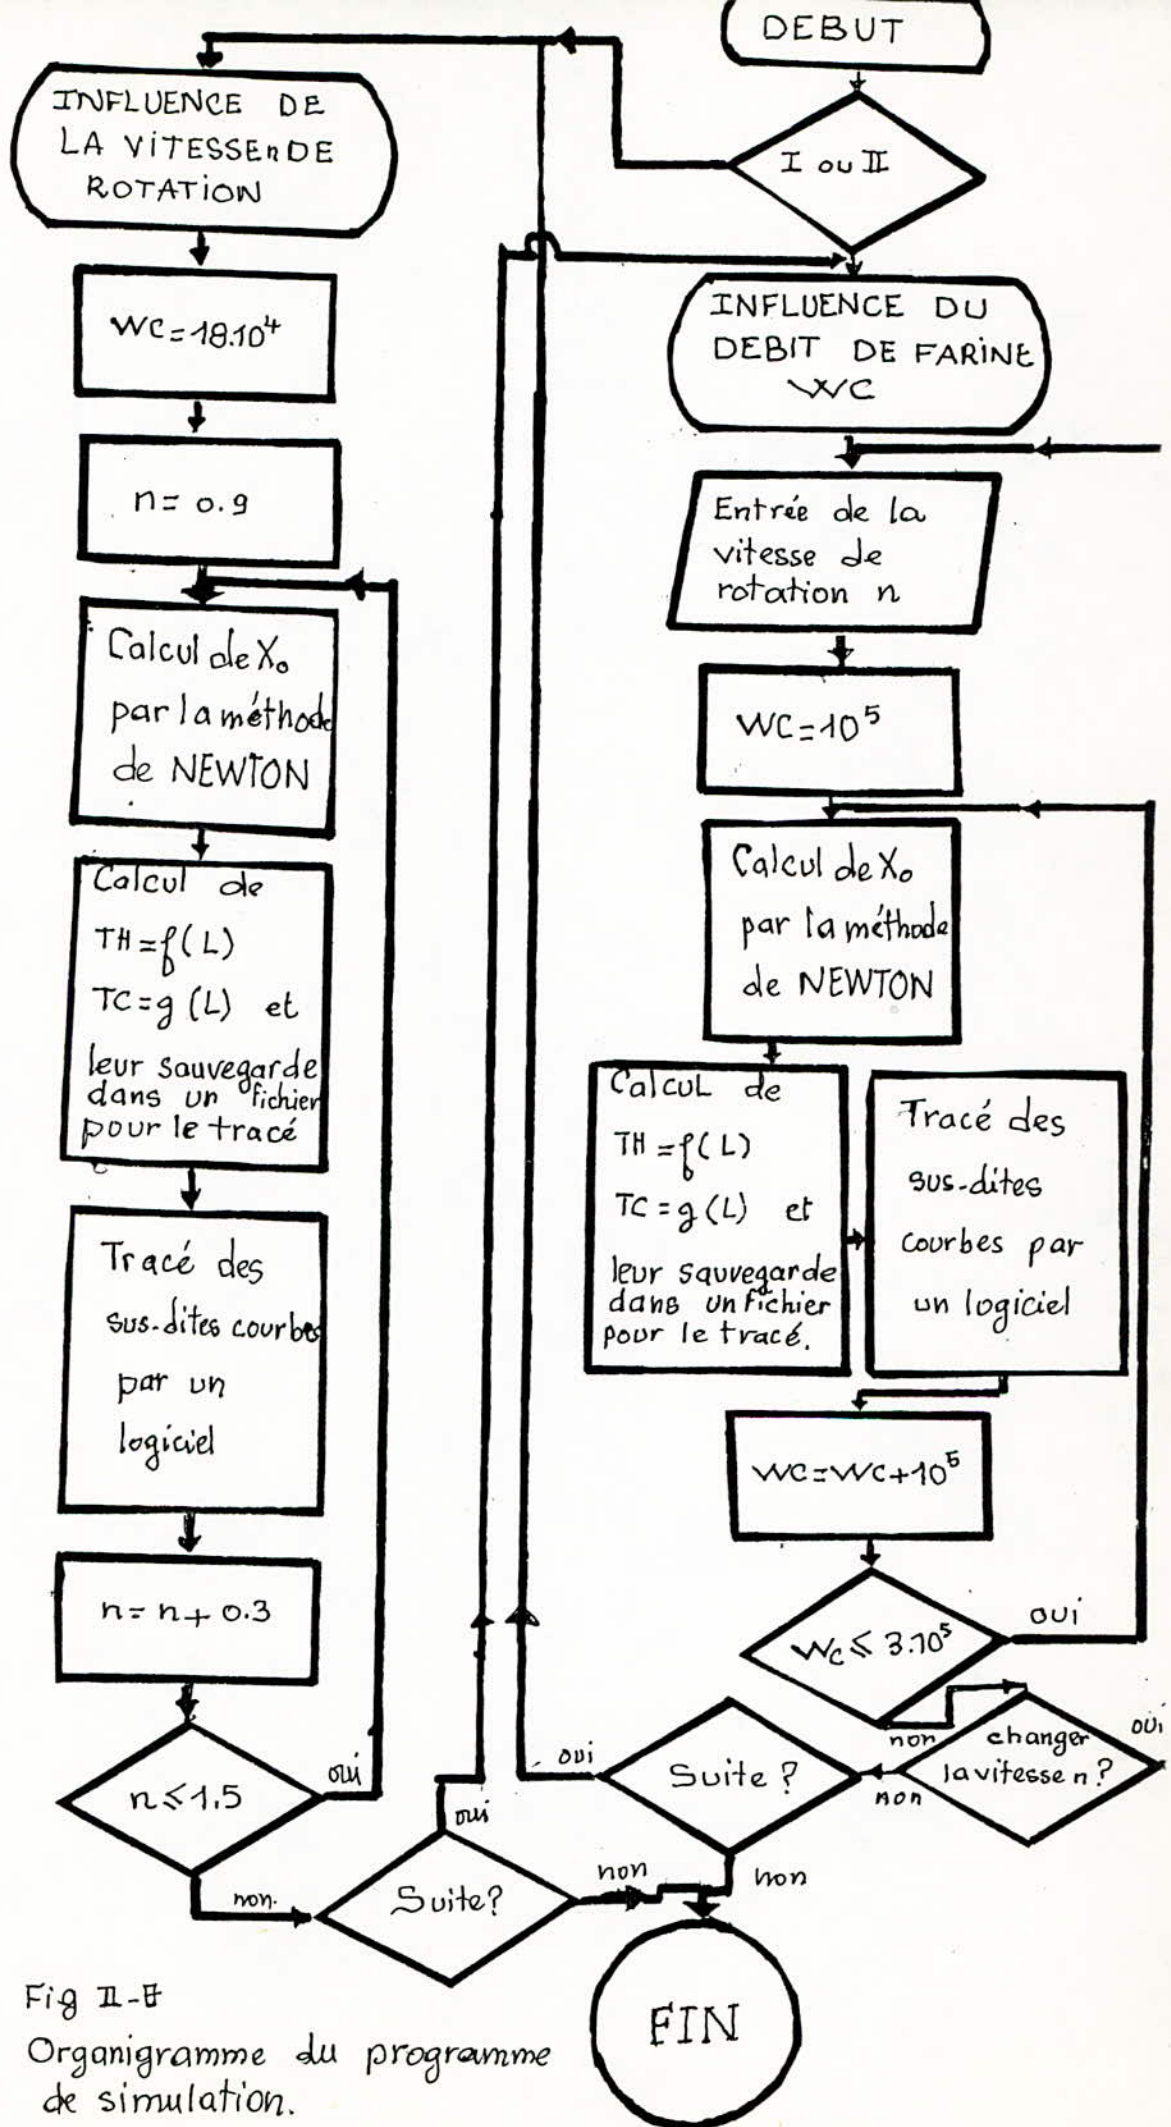 DEBUT
I ou II
INFLUENCE DE
LA VITESSE n DE
ROTATION
WC=18.10⁴
n= 0.9
Calcul de X₀
par la méthode
de NEWTON
Calcul de
TH=f(L)
TC=g(L) et
leur sauvegarde
dans un fichier
pour le tracé
Tracé des
sus-dites courbes
par un
logiciel
n= n+ 0.3
n≤1.5
oui
non.
Suite?
oui
non
INFLUENCE DU
DEBIT DE FARINE
WC
Entrée de la
vitesse de
rotation n
WC=10⁵
Calcul de X₀
par la méthode
de NEWTON
Calcul de
TH=f(L)
TC=g(L) et
leur sauvegarde
dans un fichier
pour le tracé.
Tracé des
sus-dites
courbes par
un logiciel
WC=WC+10⁵
Wc≤3.10⁵
oui
non
changer
la vitesse n?
oui
non
Suite?
oui
non
FIN
Fig II-
Organigramme du programme
de simulation.